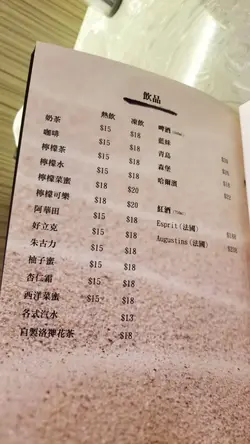 飲品
熱飲 凍飲
奶茶 $15 $18
咖啡 $15 $18
檸檬茶 $15 $18
檸檬水 $15 $18
檸檬菜蜜 $18 $20
檸檬可樂 $18 $20
阿華田 $15 $18
好立克 $15 $18
朱古力 $15 $18
柚子蜜 $15 $18
杏仁霜 $15 $18
西洋菜蜜 $15 $18
各式汽水 $13
自製洛神花茶 $18
啤酒
藍妹
青島
森堡
哈爾濱
紅酒
Esprit(法國)
Augustins(法國)